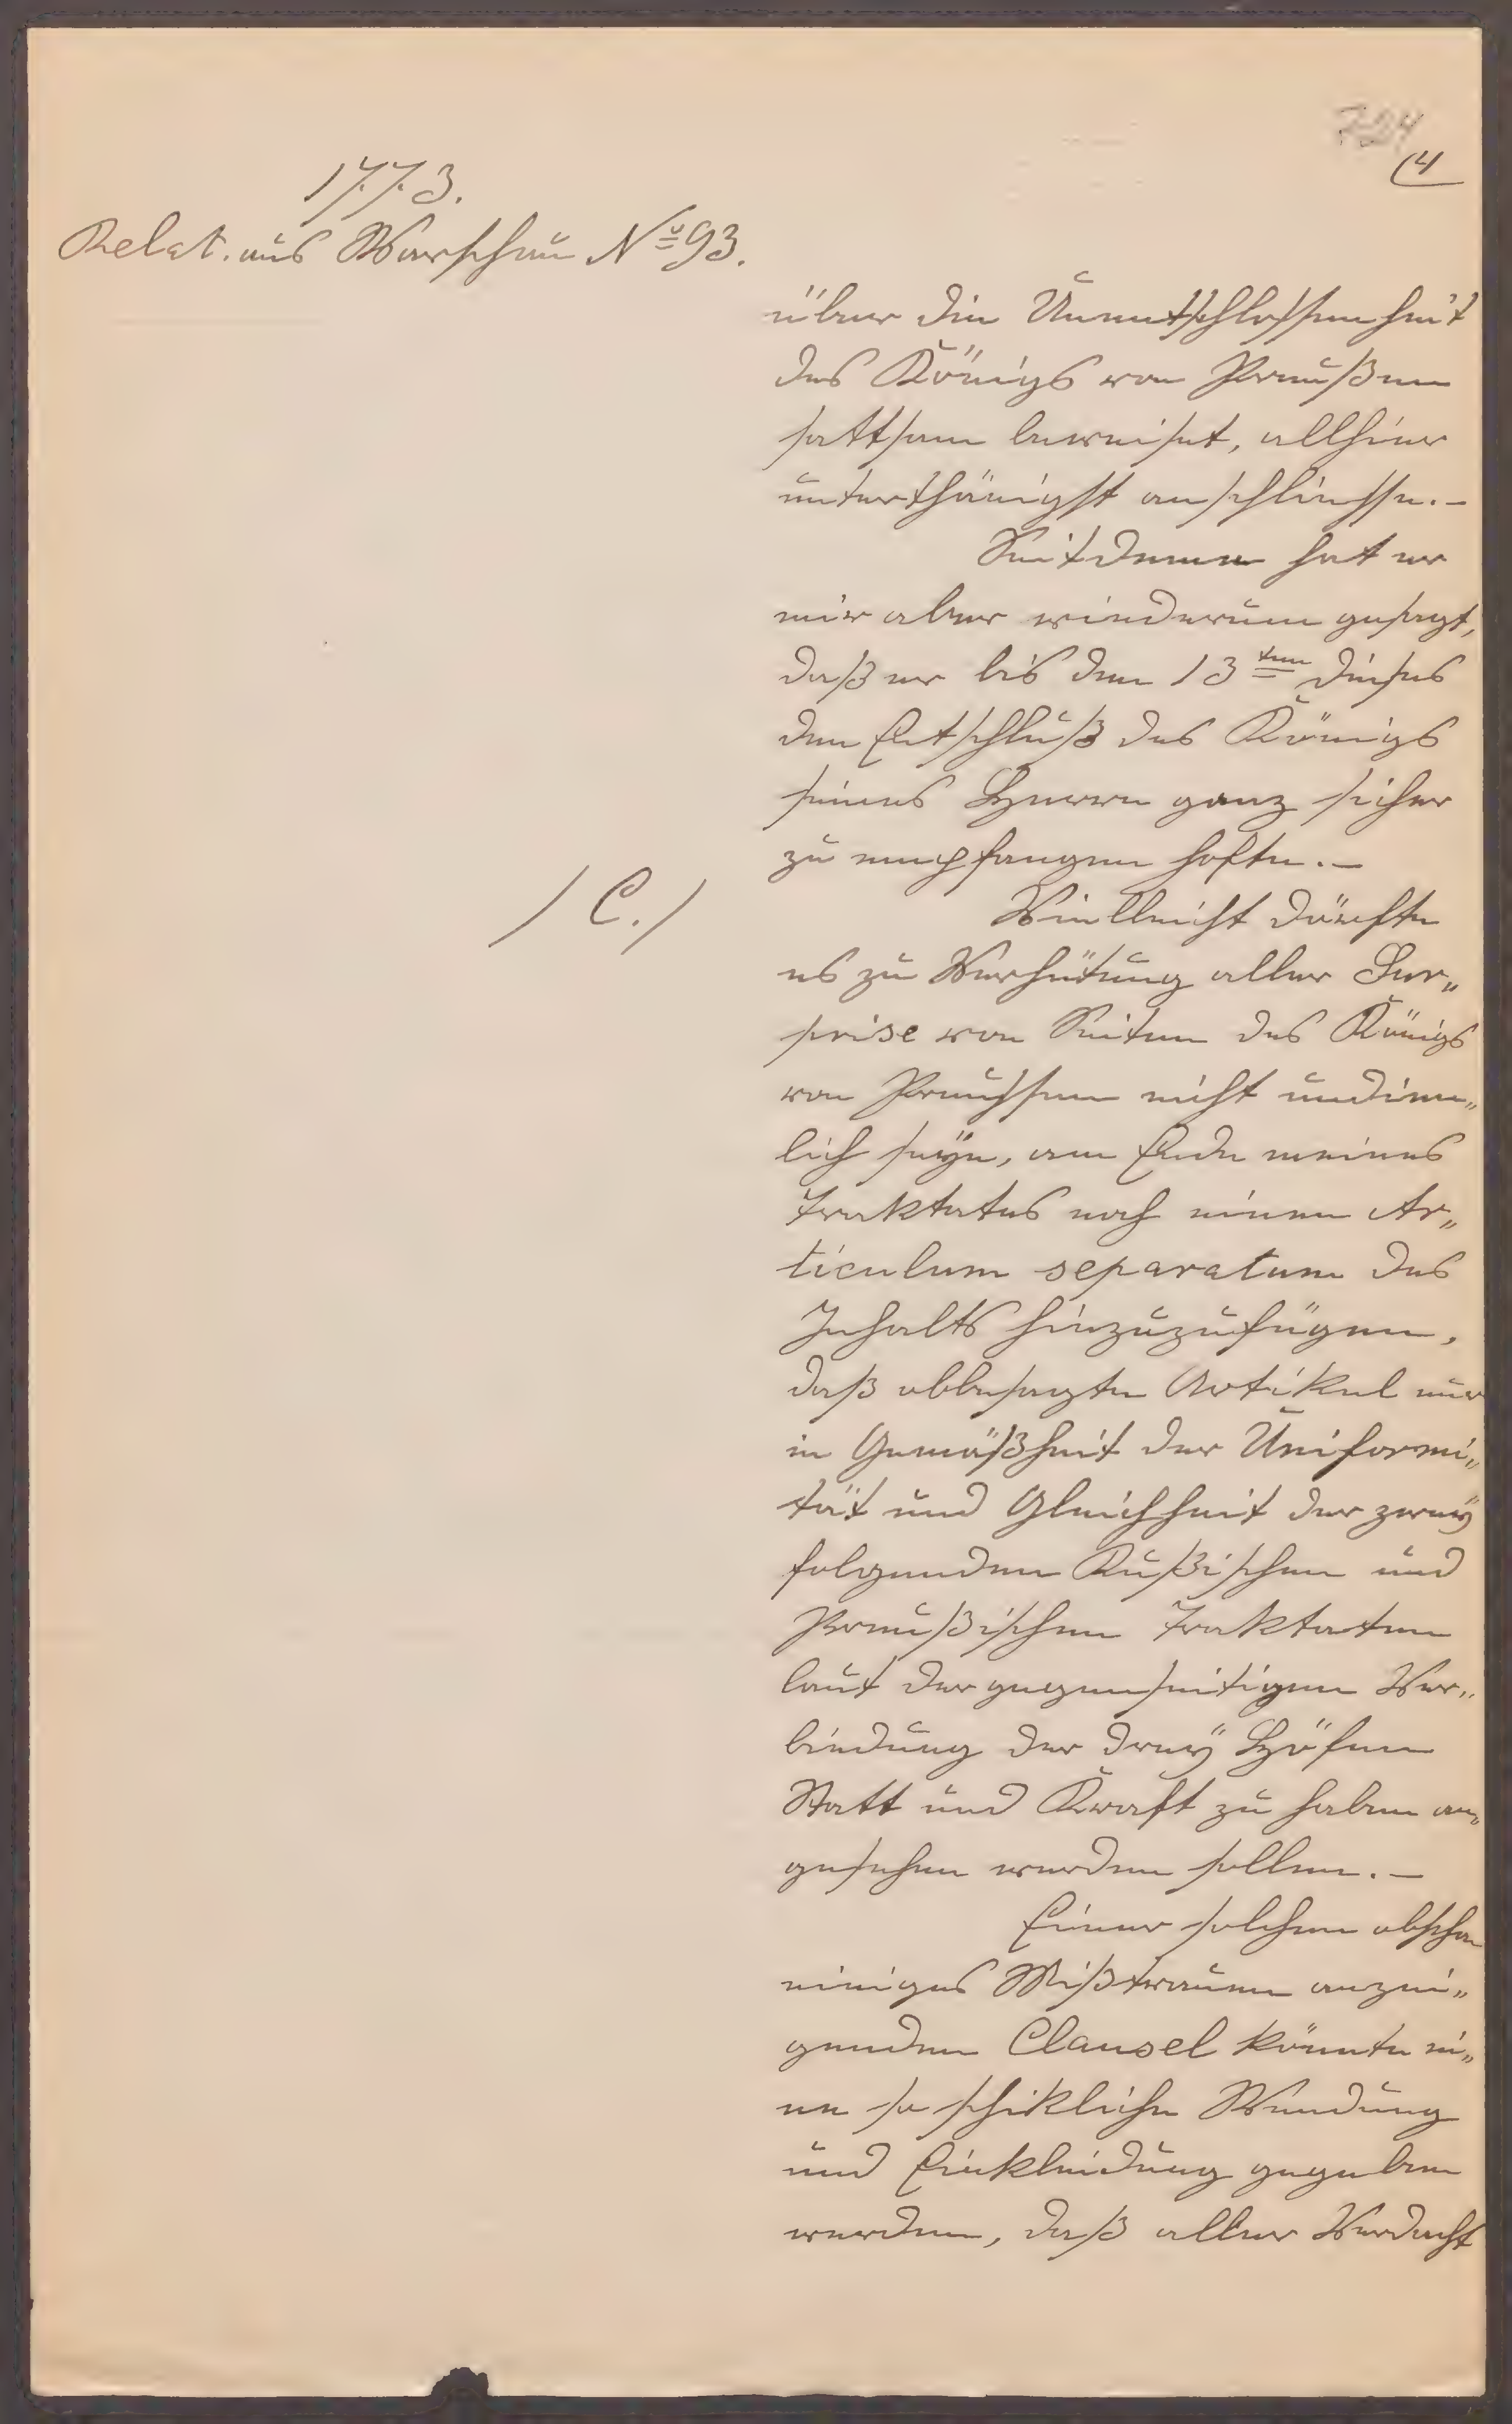 724
(4
1773.
Relat. aus Warschau No 93.
über die Unentschlossenheit
des Königs von Preußen
sattsam beweiset, allhier
unterthänigst anschliesse.-
Seitdeme hat er
mir aber wiederum gesagt,
daß er bis den 13ten dieses
den Entschluß des Königs
seines Herrn ganz sicher
zu empfangen hofte.-
/ C. /
Vielleicht dörfte
es zu Verhütung aller Sur„
prise von Seiten des Königs
von Preussen nicht undien„
lich seÿn, am Ende meines
Traktates noch einen Ar„
ticulum separatum des
Inhalts hinzuzufügen,
daß obbesagte Artikel nur
in Gemäßheit der Uniformi„
tät und Gleichheit der zweÿ
folgenden Rußischen und
Preußischen Traktaten
laut der gegenseitigen Ver„
bindung der dreÿ Höfen
Statt und Kraft zu haben an„
gesehen werden sollen.-
Einer solchen obschon
einiges Mißtrauen anzei„
genden Clausel könnte ei„
ne so schikliche Wendung
und Einkleidung gegeben
werden, daß aller Verdacht